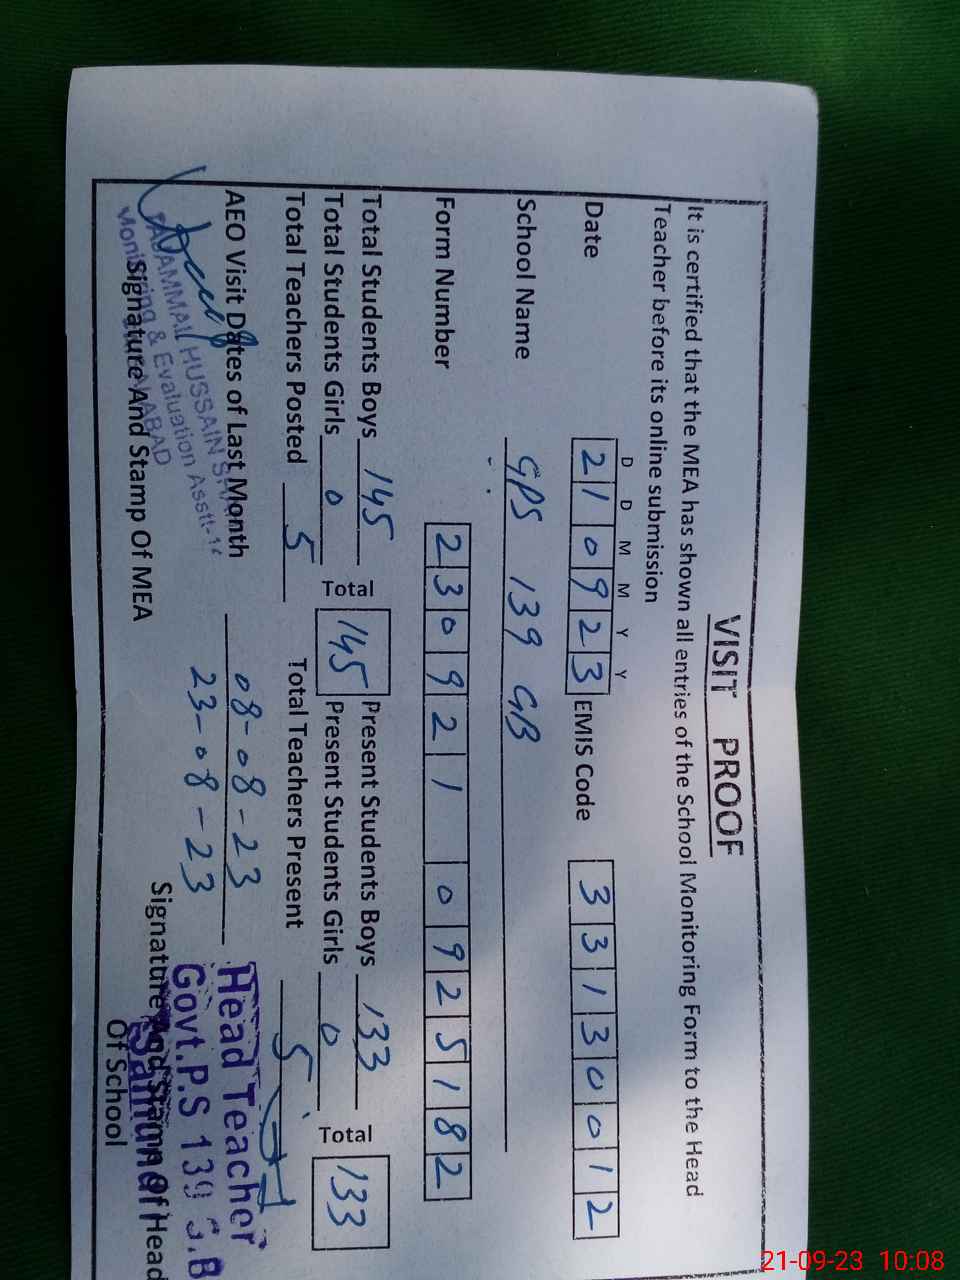 VISIT PROOF
It is certified that the MEA has shown all entries of the School Monitoring Form to the Head
Teacher before its online submission
D D M M Y Y
Date 210923 EMIS Code 33130012
School Name GPS 139 GB
Form Number 230921 0925182
Total Students Boys 145 Present Students Boys 133
Total Total
145 133
Total Students Girls 0 Present Students Girls 0
Total Teachers Posted 5 Total Teachers Present 5
AEO Visit Dates of Last Month 08-08-23
23-08-23
TAJAMMAL HUSSAIN
Monitoring & Evaluation Asstt-
Signature And Stamp Of MEA
Head Teacher
Govt.P.S 139 G.B
Signature And Stamp Of Head
Of School
21-09-23 10:08